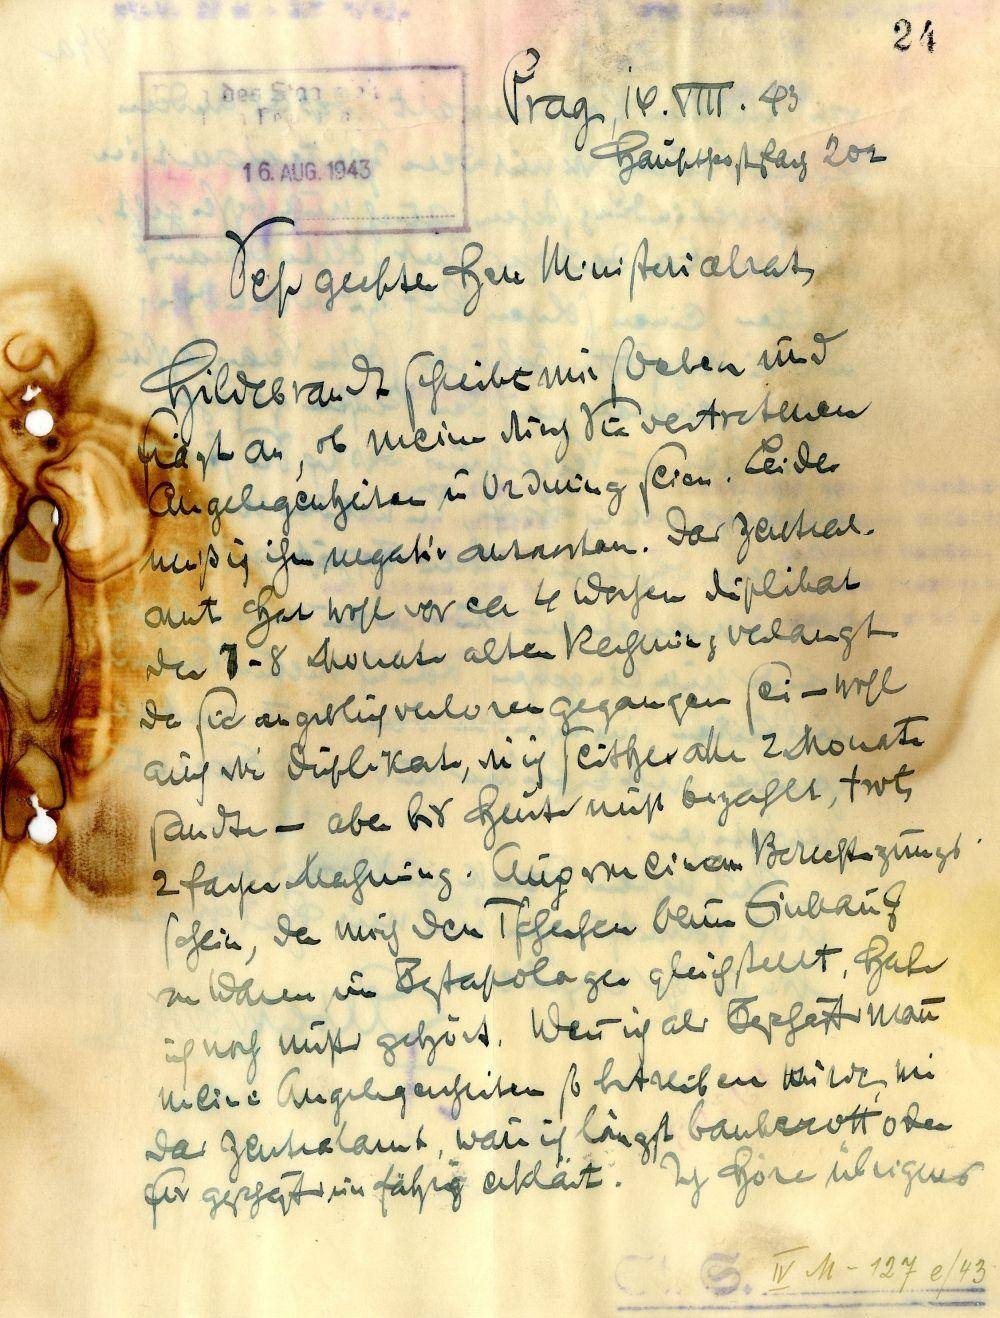 24
des Staats
16. AUG. 1943
Prag, 14. VIII. 43
Hauptpostfach 202
Sehr geehrter Herr Ministerialrat,
Hildebrandt schreibt mir soeben und
frägt an, ob meine durch Sie vertretenen
Angelegenheiten in Ordnung seien. Leider
muß ich ihm negativ antworten. Das Zentral-
amt hat wohl vor ca 4 Wochen Duplikat
der 7-8 Monate alten Rechnung verlangt
da sie angeblich verloren gegangen sei – wohl
auch die Duplikate, die ich seither alle 2 Monate
sandte – aber bis heute nicht bezahlt, trotz
2facher Mahnung. Auch von einem Berechtigungs-
schein, der mich den Tschechen beim Einkauf
von Waren im Gestapolager gleichstellt, habe
ich noch nichts gehört. Wenn ich als Geschäftsmann
meine Angelegenheiten so betreiben würde, wie
das Zentralamt, wär ich längst bankerott oder
für geschäftsunfähig erklärt. Ich höre übrigens
IV M - 127 e/43